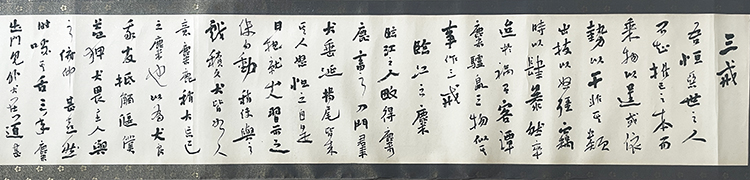 三戒
吾恒惡世之人
不知推己之本而
乘物以逞或依
勢以干非其類
出技以怒强竊
時以肆暴然卒
迨於禍有客譚
麋驢鼠三物似其
事作三戒
臨江之麋
臨江之人畋得麋
麑畜之入門羣
犬垂涎揚尾皆來
其人怒怛之自是
日抱就犬習示之
使勿動稍使與之
戲積久犬皆如人
意麋麑稍大忘己
之麋也以為犬良
我友抵觸偃僕
益狎犬畏主人與
之俯仰甚善然
時啖其舌三年麋
出門見外犬在道甚